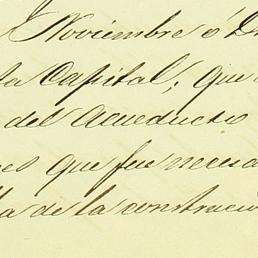 Noviembre ó D
ta Capital; que
del Acueducto
es que fue necesa
la de la construcci